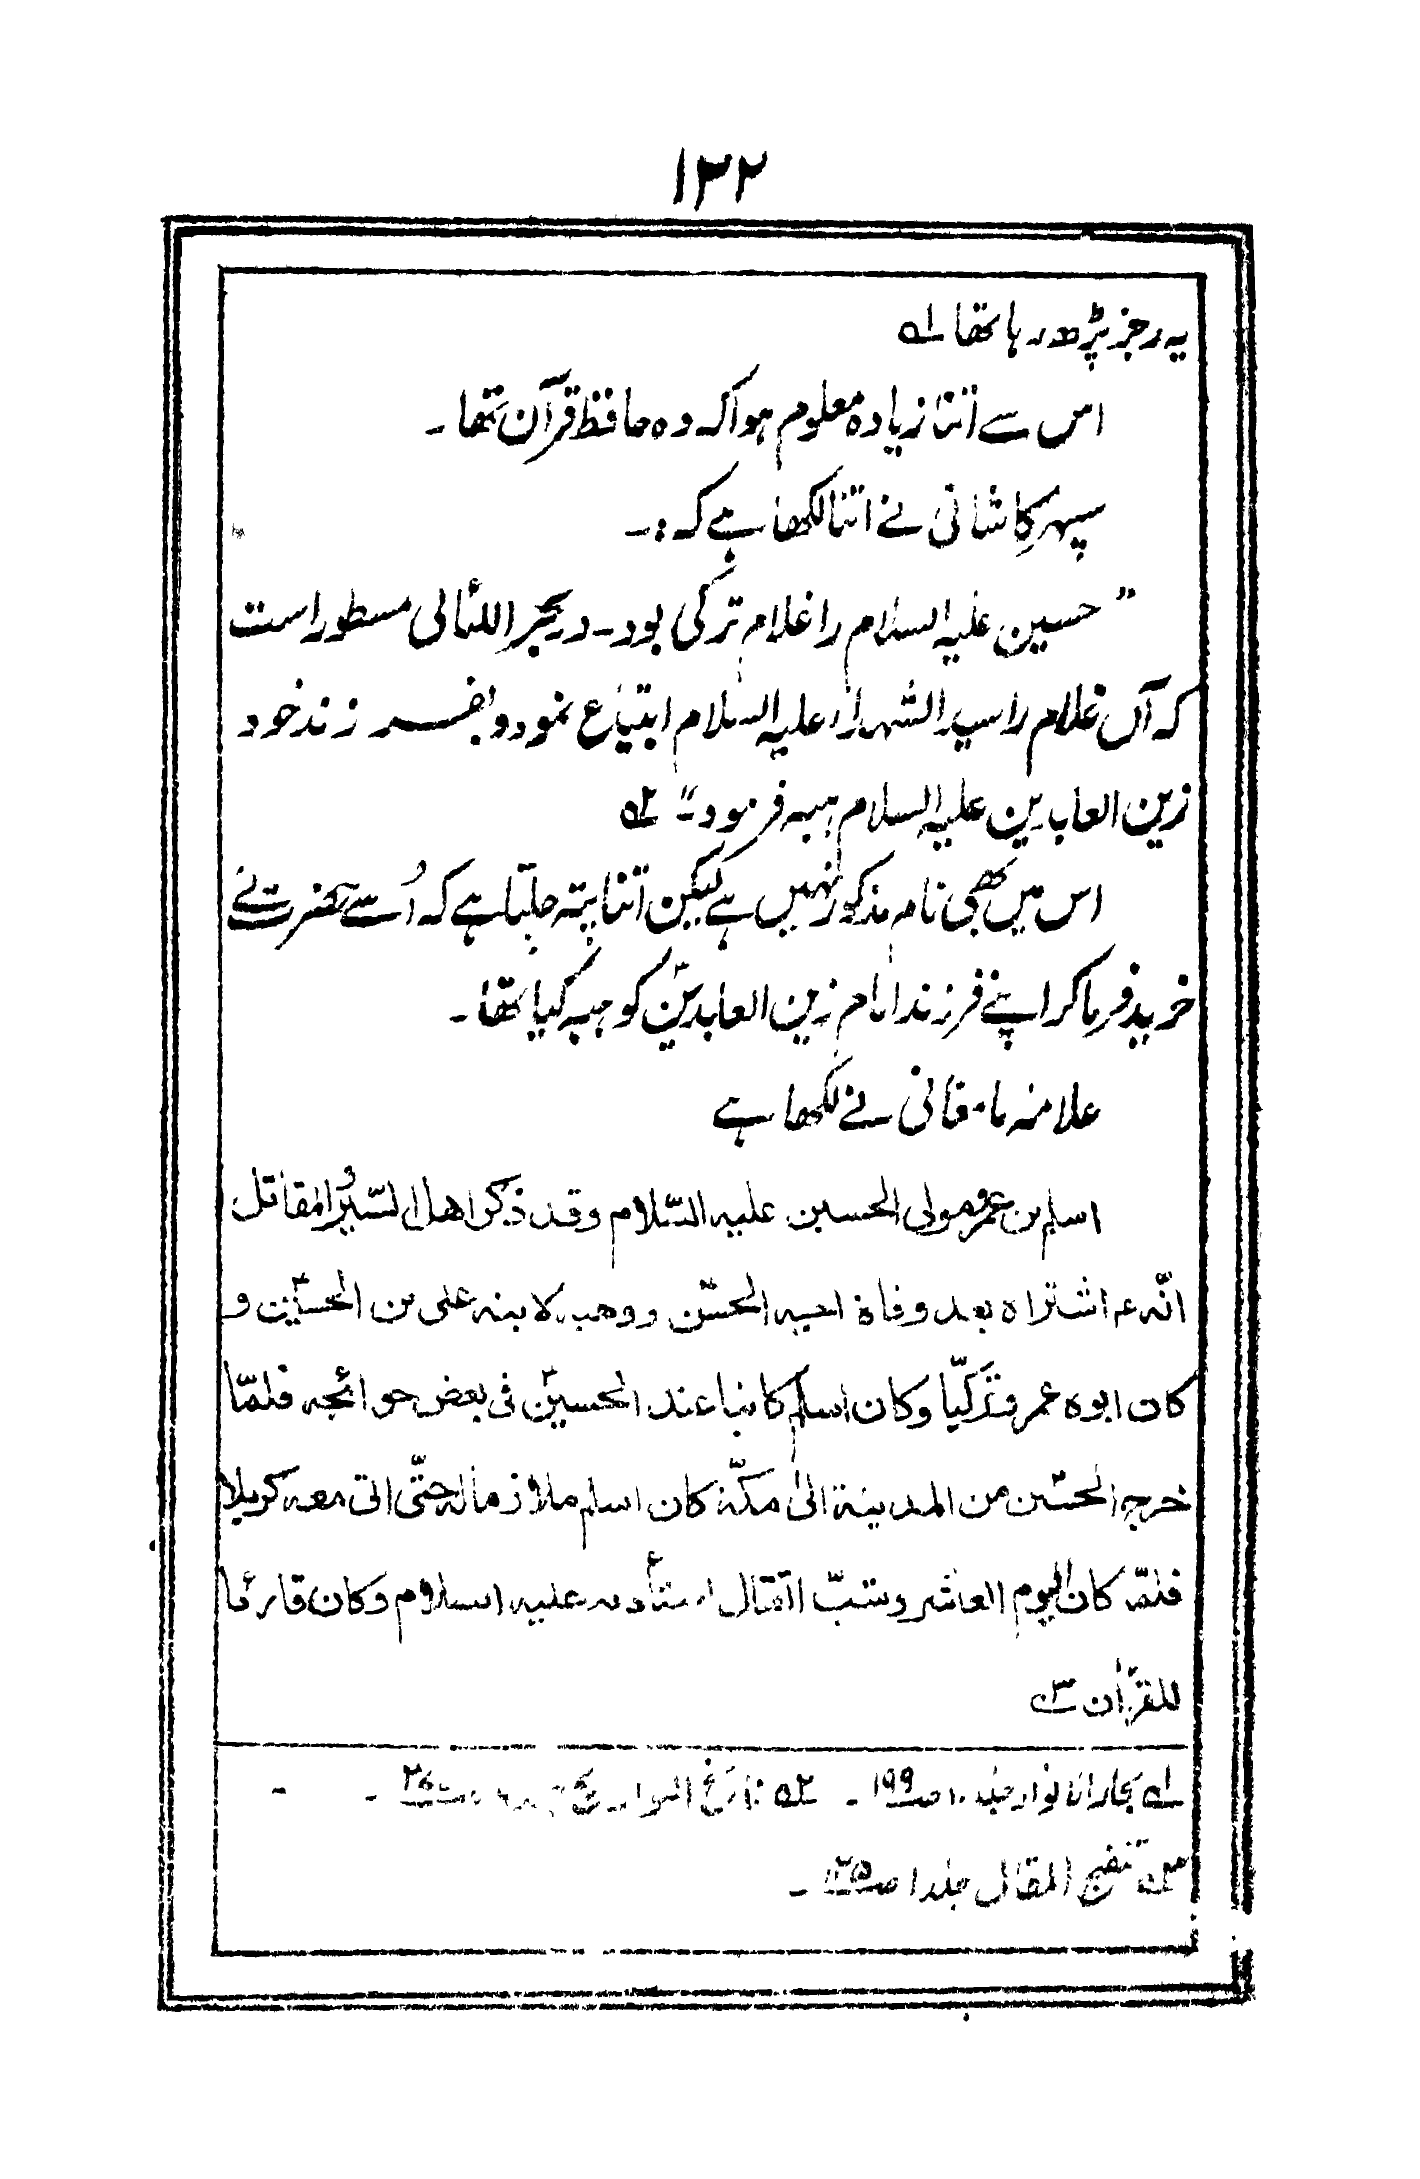 ۱۳۲
یہ رجز پڑھ رہا تھا لہ
اس سے اتنا زیادہ معلوم ہوا کہ وہ حافظ قرآن تھا۔
سپہر کاشانی نے اتنا لکھا ہے کہ :۔
”حسین علیہ السلام را غلام ترکی بود۔ در بحر اللئالی مسطور است
کہ آں غلام را سید الشہداء علیہ السلام ابتیاع نمود و بفرزند خود
زین العابدین علیہ السلام ہبہ فرمود۔“ ۲ہ
اس میں بھی نام مذکور نہیں ہے لیکن اتنا پتہ چلتا ہے کہ اُسے حضرت نے
خرید فرما کر اپنے فرزند امام زین العابدینؑ کو ہبہ کیا تھا۔
علامہ مامقانی نے لکھا ہے
اسلم بن عمرو مولی الحسین علیہ السّلام وقد ذکر اھل السّیر والمقاتل
انّہ ع اشتراہ بعد وفاة اخیہ الحسنؑ ووھبہ لابنہ علی بن الحسینؑ و
کان ابوہ عمرو ترکیّا وکان اسلم کاتبا عند الحسینؑ فی بعض حوائجہ فلمّا
خرج الحسینؑ من المدینة الیٰ مکّة کان اسلم ملازما لہ حتّی اتی معہ کربلا
فلمّا کان الیوم العاشر وشبّ القتال استأذنہ علیہ السلام وکان قارئا
للقرآن ۳ہ
لہ بحار الانوار جلد ۱۰ ص۱۹۹ ۔ ۲ہ ناسخ التواریخ
۳ہ تنقیح المقال جلد ۱ ص۱۲۵ ۔